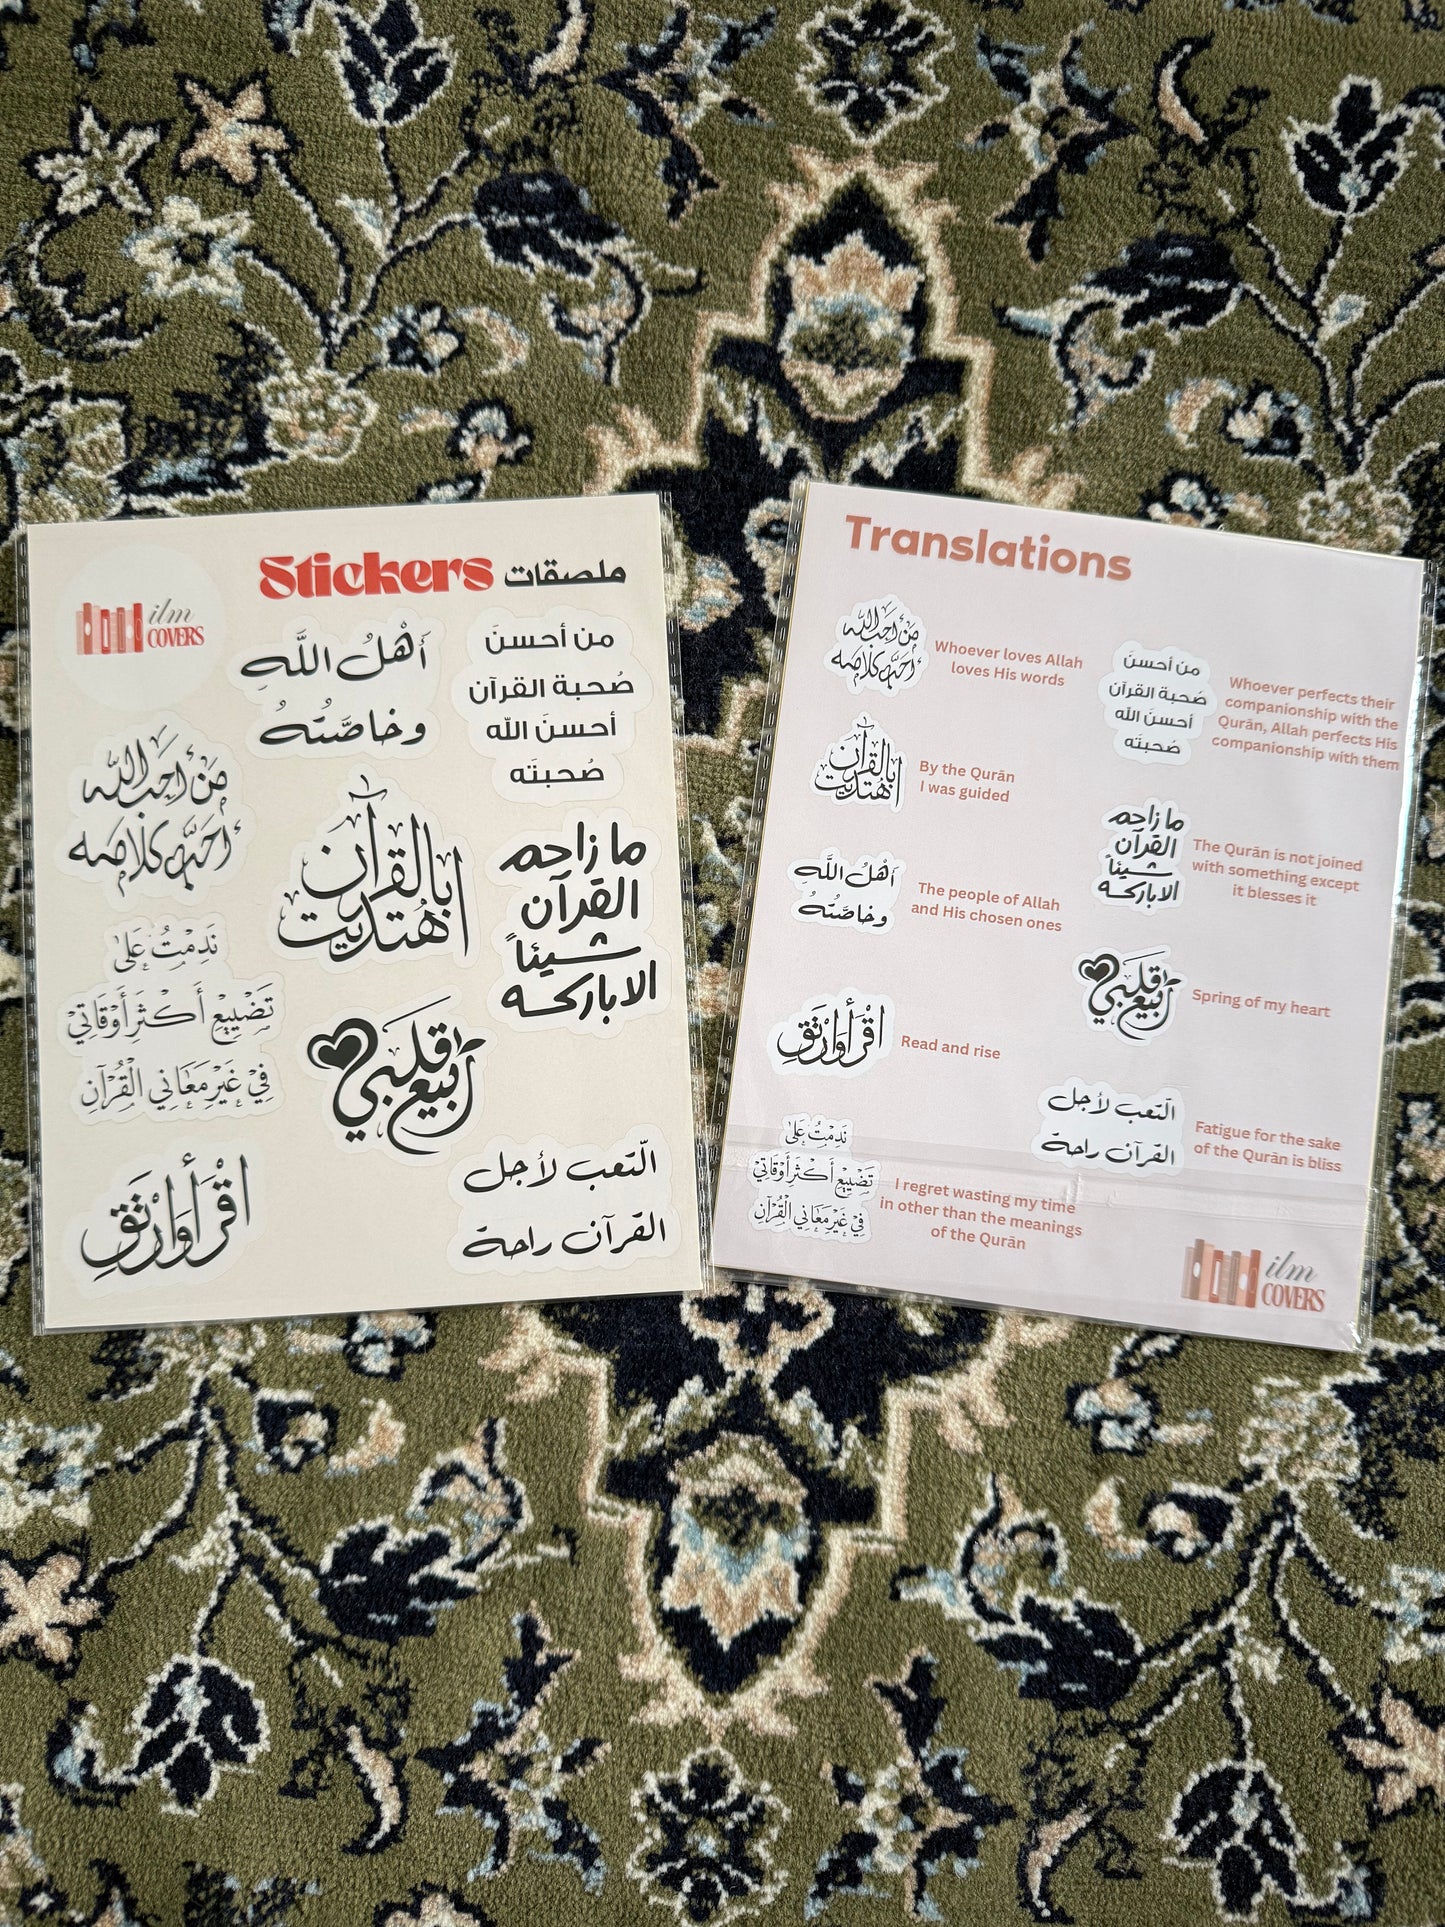 ilm
COVERS
Stickers ملصقات
أَهْلُ اللَّهِ
وخاصَّتُهُ
من أحسنَ
صُحبة القرآن
أحسنَ الله
صُحبتَه
مَنْ أحَبَّ اللّه
أحَبَّ كلامَه
بالقُرآن
اهْتَدَيت
ما زاحم
القرآن
شيئاً
الا باركه
نَدِمْتُ عَلَى
تَضْيِيْعِ أَكْثَرِ أَوْقَاتِيْ
فِيْ غَيْرِ مَعَانِي الْقُرْآنِ
رَبيع قلبي
اقْرَأْ وَارْتَقِ
التّعب لأجل
القرآن راحة
Translations
مَنْ أحَبَّ اللّه
أحَبَّ كلامَه
Whoever loves Allah
loves His words
من أحسنَ
صُحبة القرآن
أحسنَ الله
صُحبتَه
Whoever perfects their
companionship with the
Qurān, Allah perfects His
companionship with them
بالقُرآن
اهْتَدَيت
By the Qurān
I was guided
ما زاحم
القرآن
شيئاً
الا باركه
The Qurān is not joined
with something except
it blesses it
أَهْلُ اللَّهِ
وخاصَّتُهُ
The people of Allah
and His chosen ones
رَبيع قلبي
Spring of my heart
اقْرَأْ وَارْتَقِ
Read and rise
التّعب لأجل
القرآن راحة
Fatigue for the sake
of the Qurān is bliss
نَدِمْتُ عَلَى
تَضْيِيْعِ أَكْثَرِ أَوْقَاتِيْ
فِيْ غَيْرِ مَعَانِي الْقُرْآنِ
I regret wasting my time
in other than the meanings
of the Qurān
ilm
COVERS